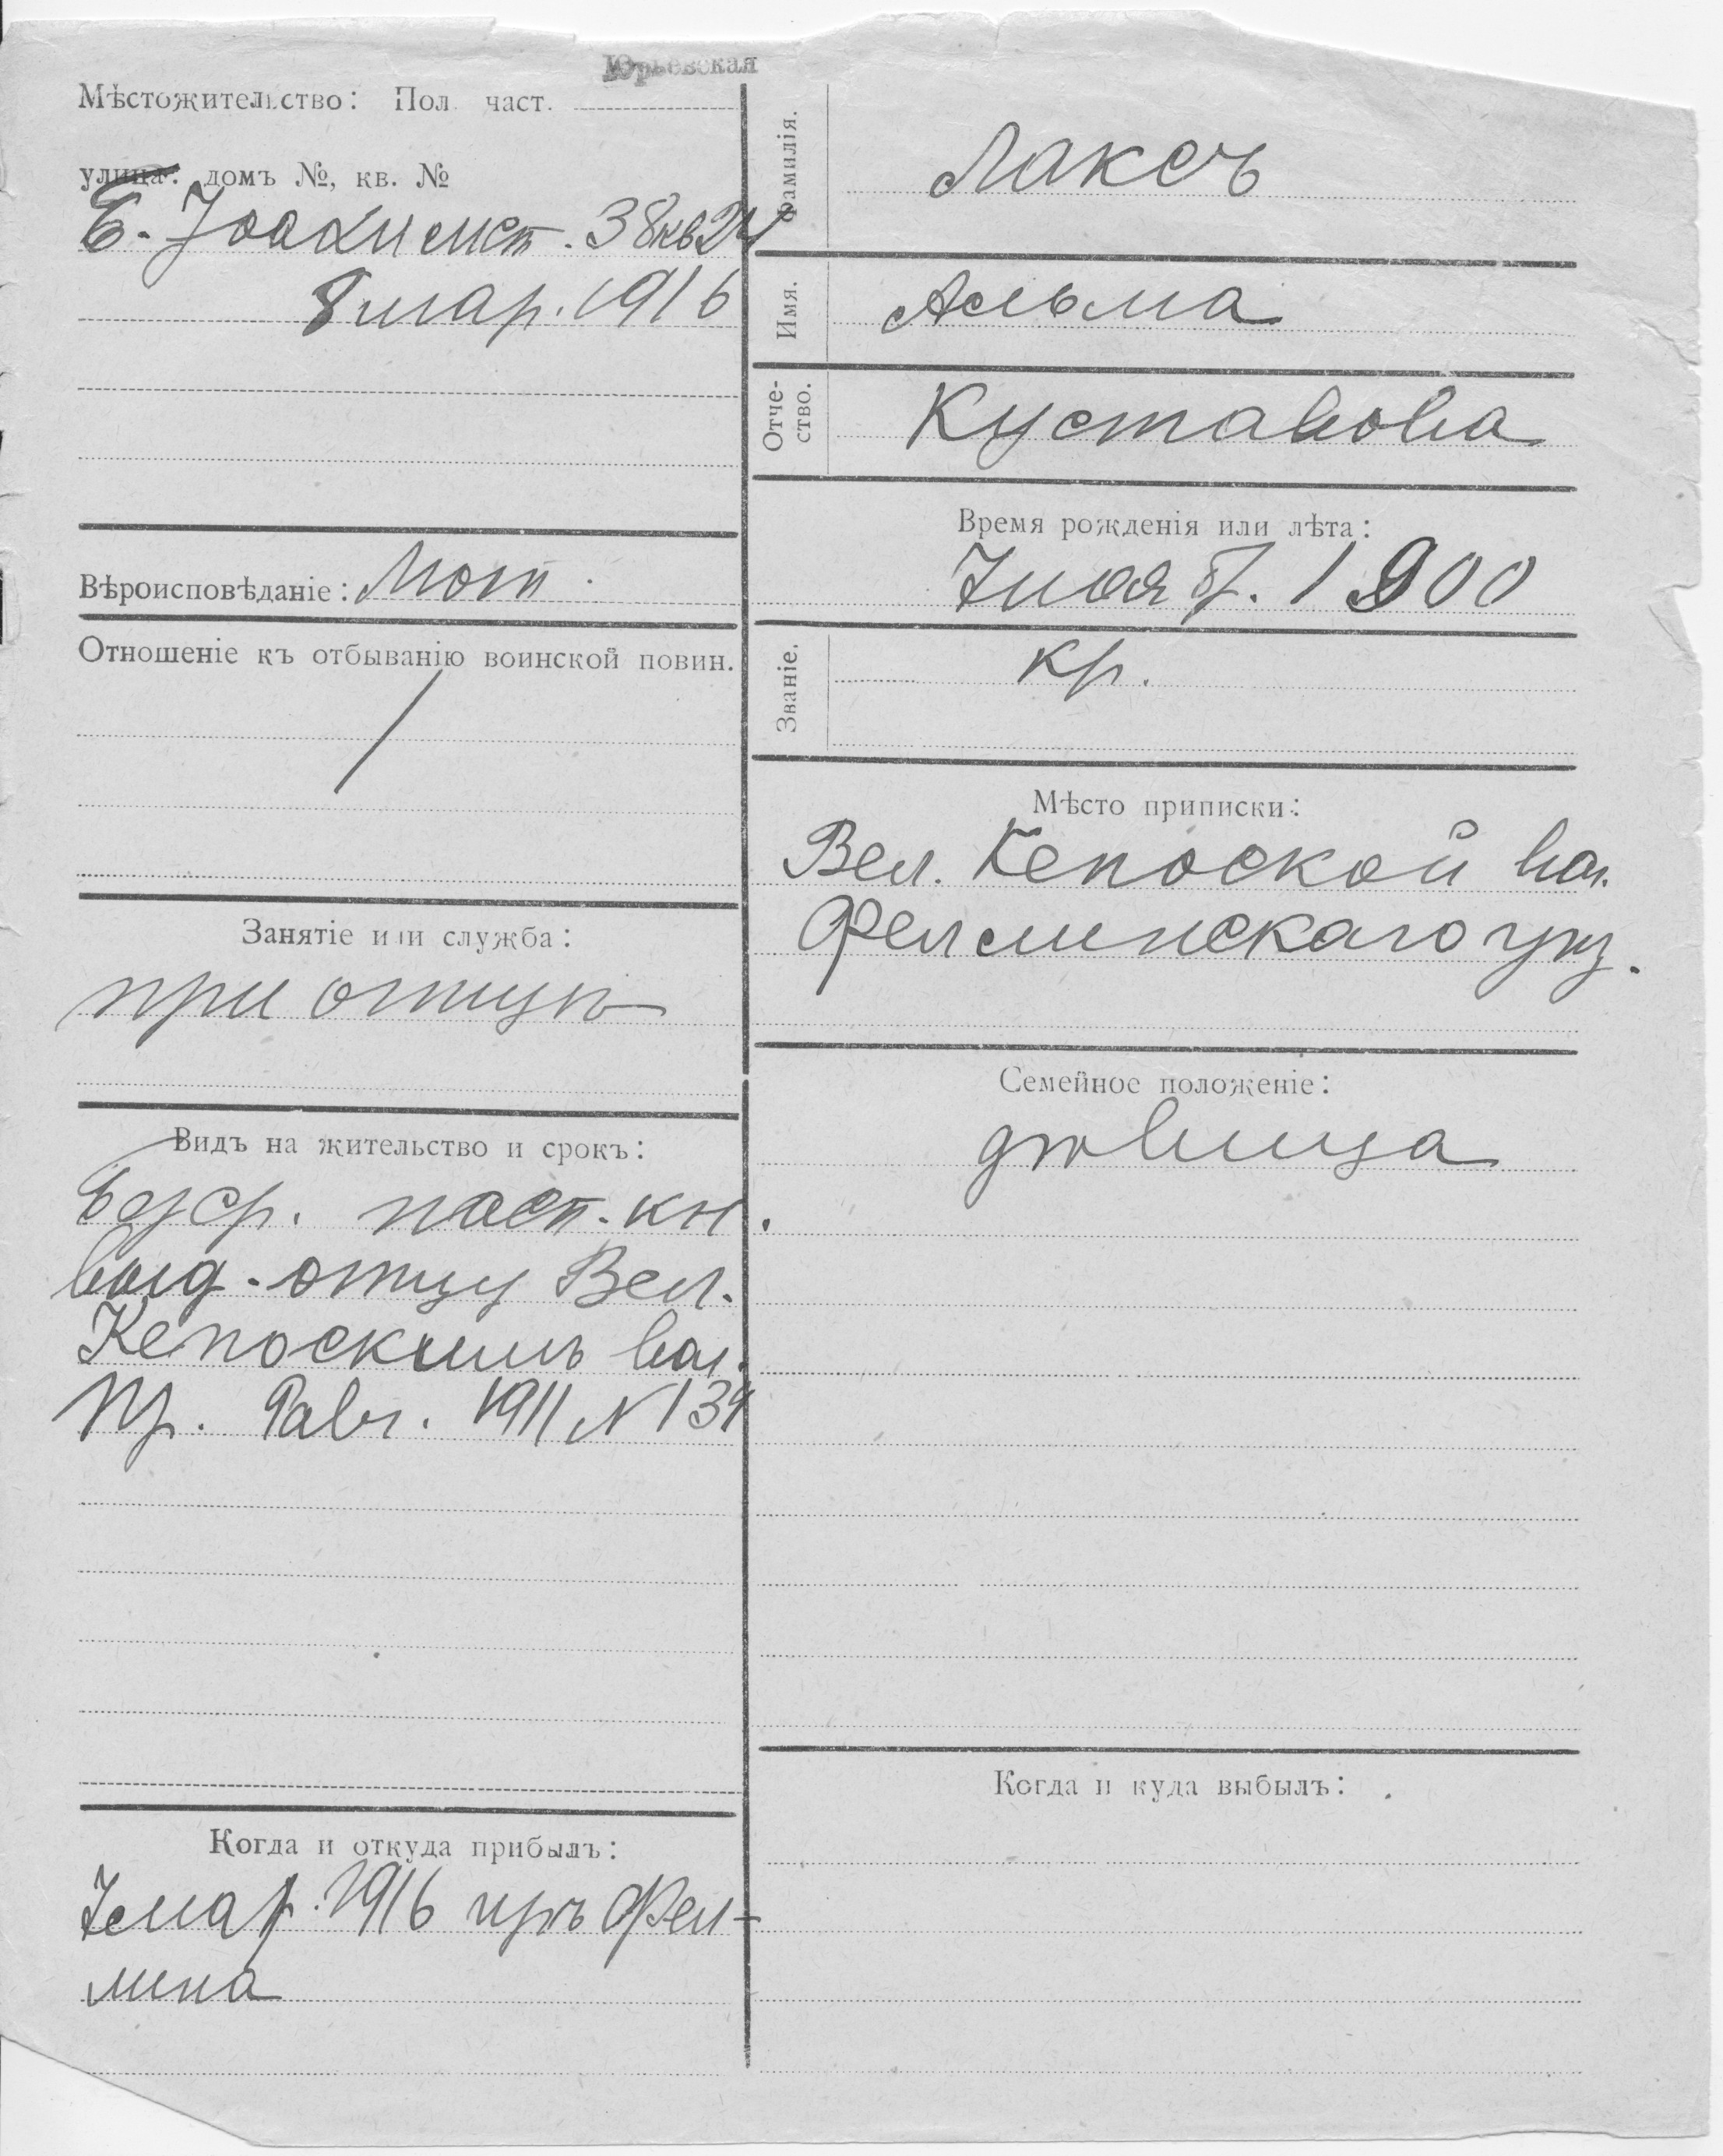 Юрьевская
Мѣстожительство: Пол. част.
улица: домъ №, кв. №
38 кв 24
8 мар. 1916
Вѣроисповѣданіе: Лют.
Отношеніе къ отбыванію воинской повин.
/
Занятіе или служба:
при отцѣ
Видъ на жительство и срокъ:
Безср. пасп. кн.
выд. отцу Вел.
Кепоскимъ вол.
пр. 9 авг. 1911 № 134
Когда и откуда прибылъ:
7 мар. 1916 изъ Фел-
лина
Фамилія.
Лаксъ
Имя.
Альма
Отче-
ство.
Куставова
Время рожденія или лѣта:
7. 1900
Званіе.
кр.
Мѣсто приписки:
Вел. Кепоской вол.
Феллинскаго уѣз.
Семейное положеніе:
дѣвица
Когда и куда выбылъ: